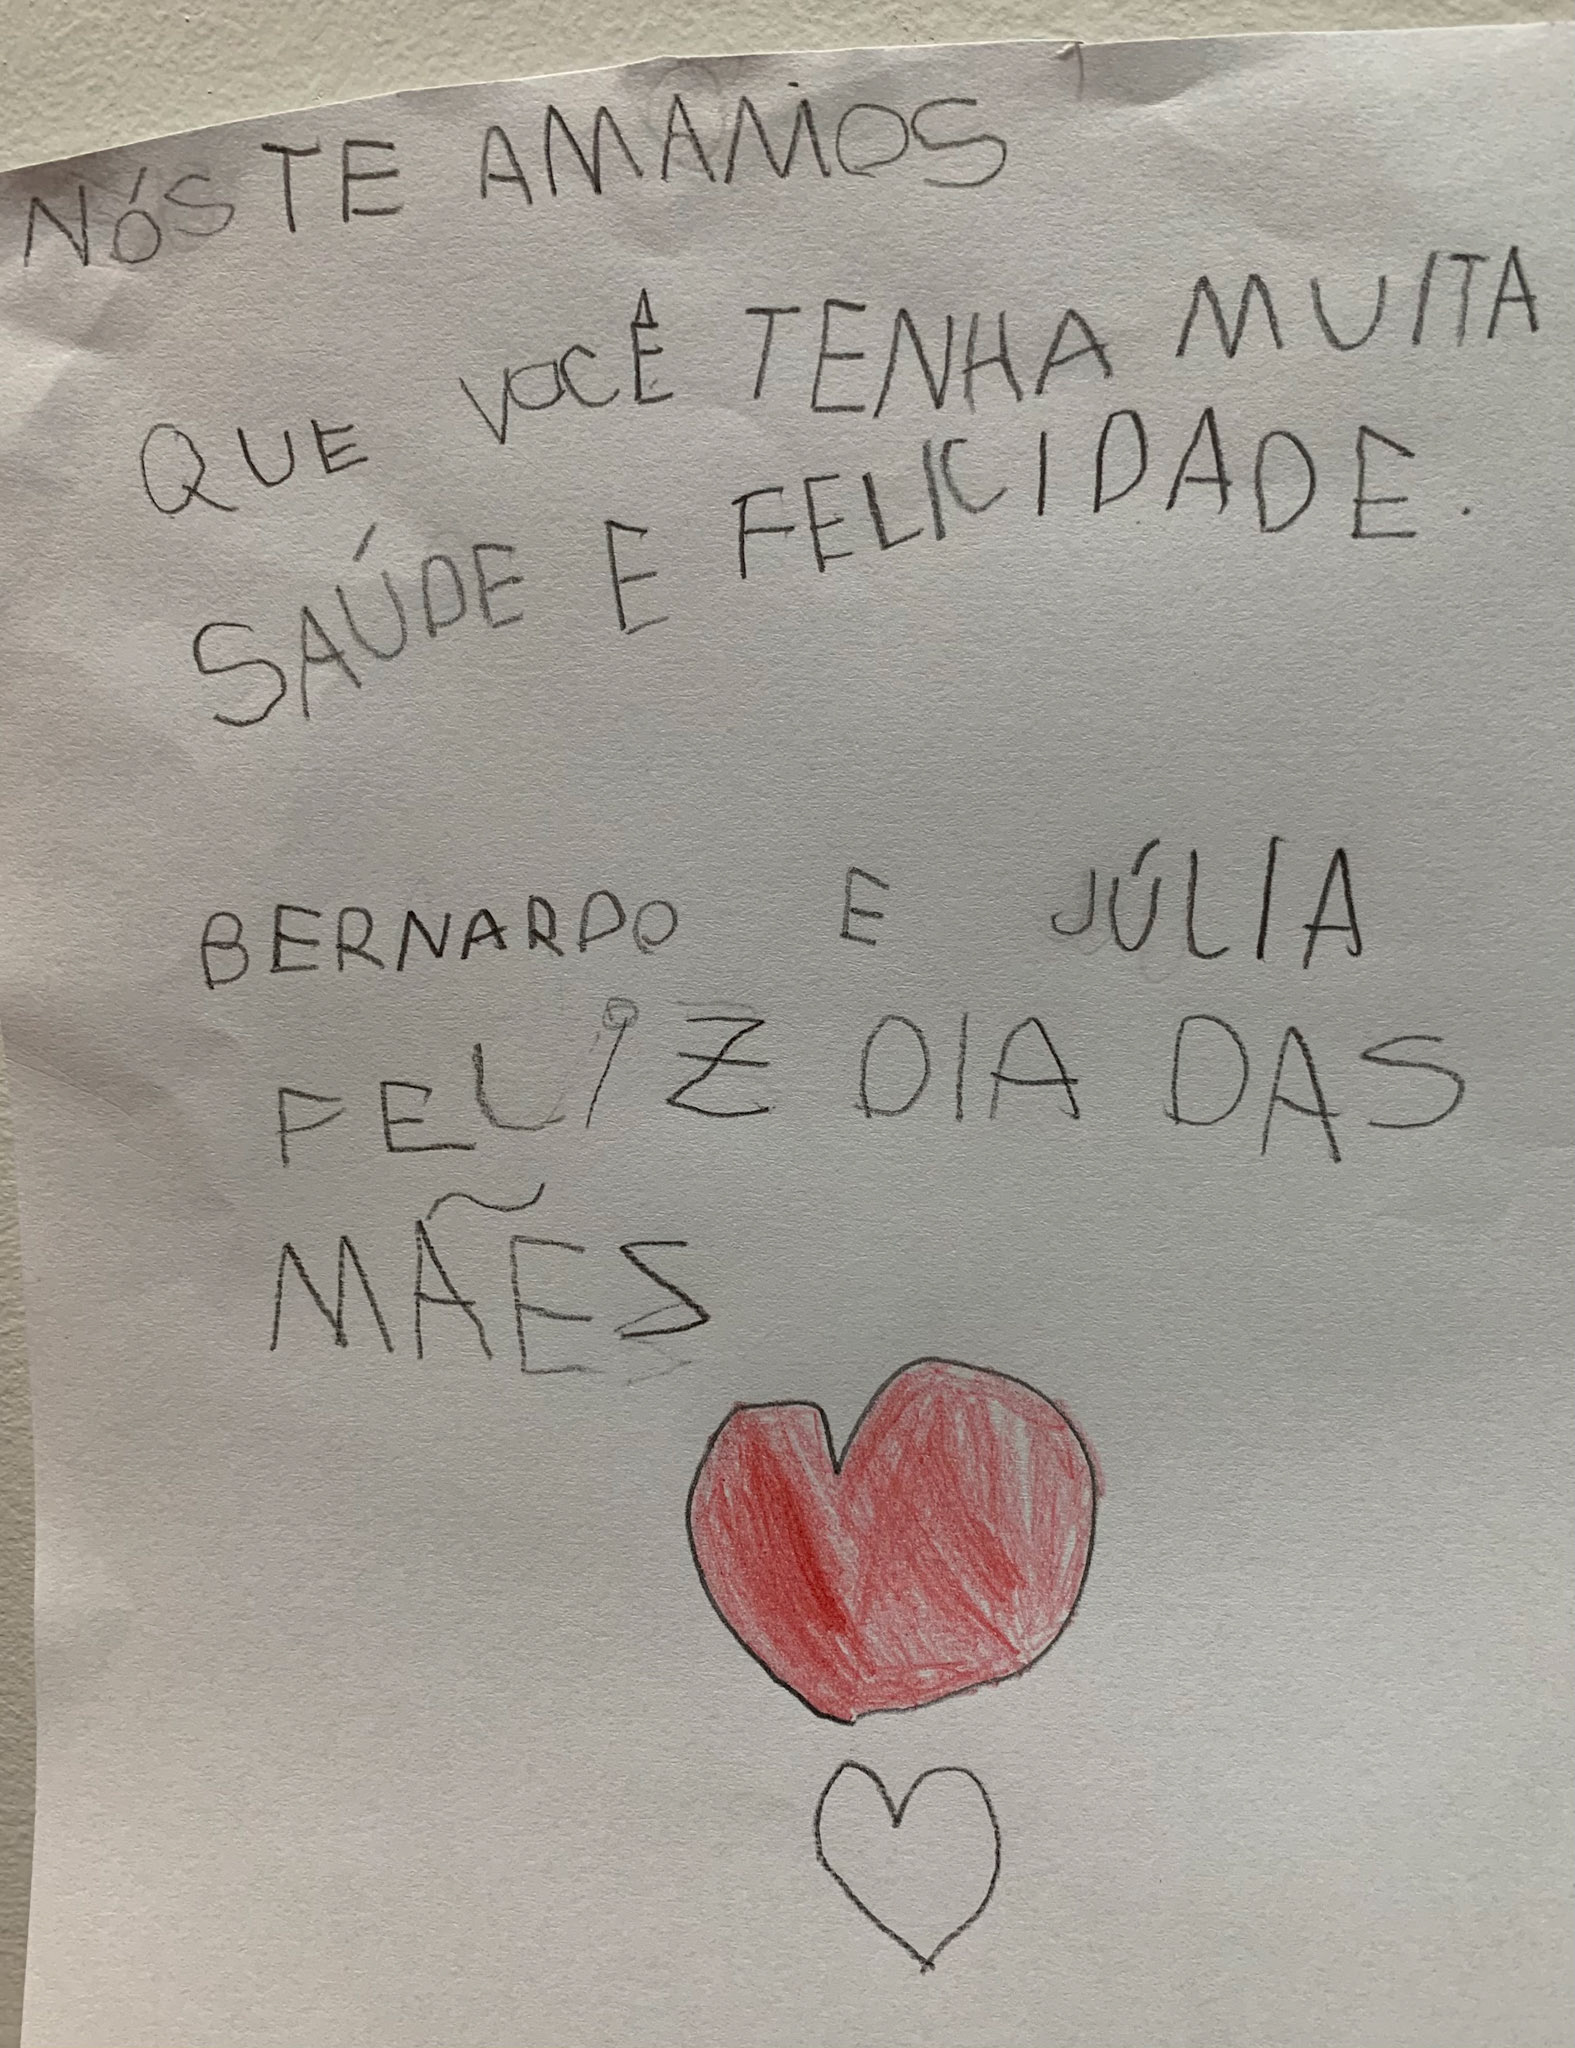 NÓS TE AMAMOS
QUE VOCÊ TENHA MUITA
SAÚDE E FELICIDADE.
BERNARDO E JÚLIA
FELIZ DIA DAS
MÃES